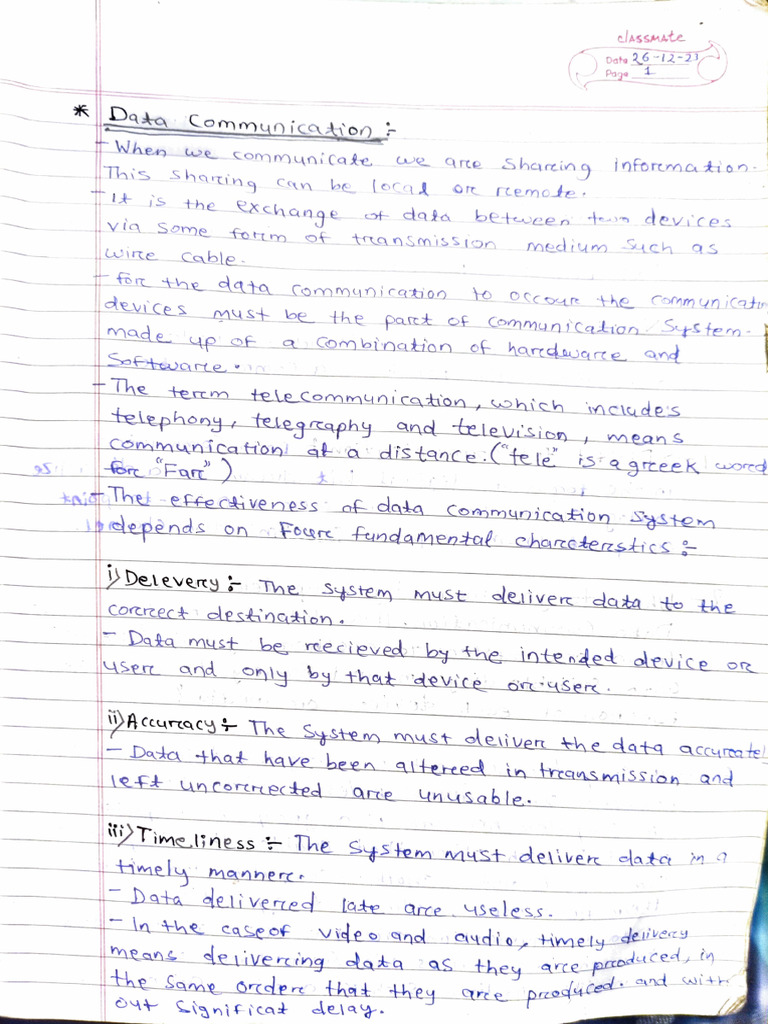 classmate
Date 26-12-23
Page 1
* Data Communication :-
- When we communicate we are sharing information.
This sharing can be local or remote.
- It is the exchange of data between devices
via some form of transmission medium such as
wire cable.
- for the data communication to occour the communicatin
devices must be the part of communication system.
made up of a combination of hardware and
software.
- The term telecommunication, which includes
telephony, telegraphy and television, means
communication at a distance. ("tele" is a greek word
for "Far")
- The effectiveness of data communication system
depends on Four fundamental charcterstics :-
i) Delevery :- The system must deliver data to the
correct destination.
- Data must be recieved by the intended device or
user and only by that device or user.
ii) Accuracy :- The system must deliver the data accuratel
- Data that have been altered in transmission and
left uncorrected are unusable.
iii) Timeliness :- The system must deliver data in a
timely manner.
- Data delivered late are useless.
- In the case of video and audio, timely delivery
means delivering data as they are produced, in
the same order that they are produced. and with
out significat delay.